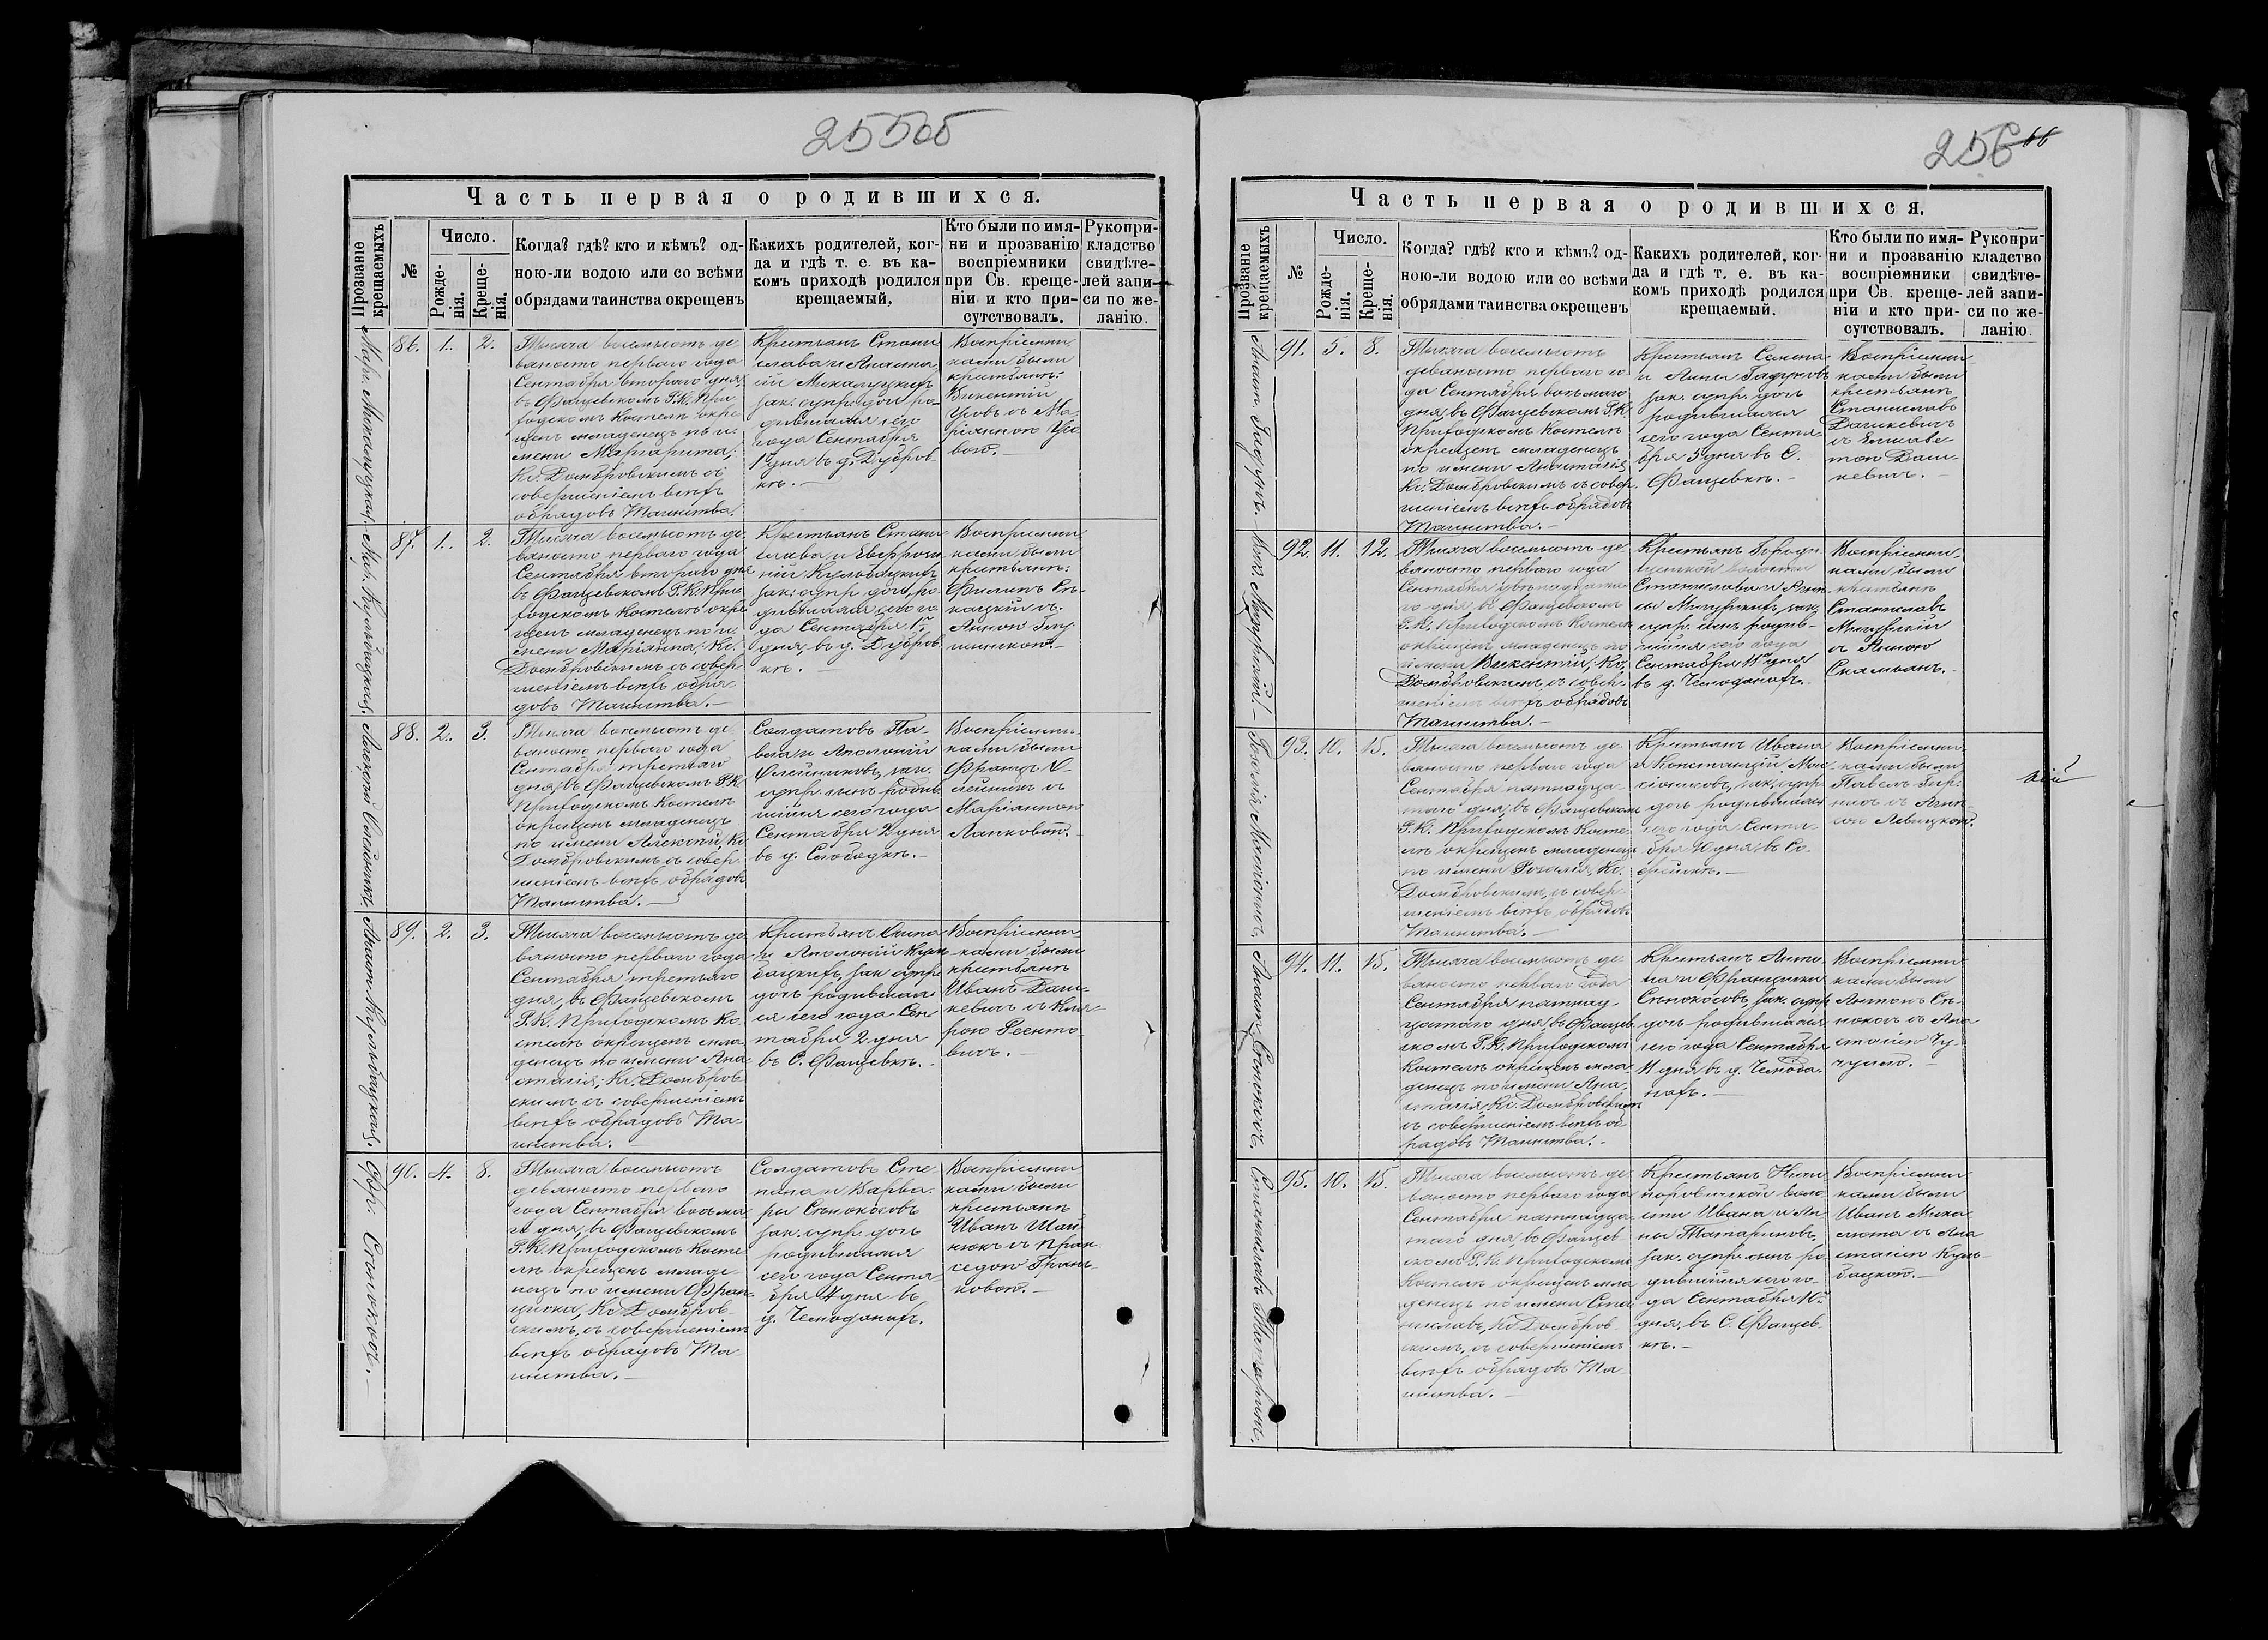 255об
Часть первая о родившихся.
Прозваніе крещаемыхъ
№
Число.
Рожде-
нія.
Креще-
нія.
Когда? гдѣ? кто и кѣмъ? од-
ною-ли водою или со всѣми
обрядами таинства окрещенъ
Какихъ родителей, ког-
да и гдѣ т. е. въ ка-
комъ приходѣ родился
крещаемый.
Кто были по имя-
ни и прозванію
воспріемники
при Св. креще-
ніи и кто при-
сутствовалъ.
Рукопри-
кладство
свидѣте-
лей запи-
си по же-
ланію.
86. 1. 2.
Тысяча восемьсотъ де-
вяносто перваго года
Сентября втораго дня
въ Фащевскомъ Р.К. При-
ходскомъ Костелѣ окре-
щенъ младенецъ по и-
мени Маргарита;
Кс. Домбровскимъ съ
совершеніемъ всѣхъ
обрядовъ Таинства.
Крестьянъ Стани-
слава и Анаста-
зіи
зак. супр. дочь ро-
дившаяся сего
года Сентября
1го дня въ д. Дубров-
кѣ. —
Воспріемни-
ками были
крестьяне:
Викентій
съ Ма-
ріанною
87. 1. 2.
Тысяча восемьсотъ де-
вяносто перваго года
Сентября втораго дня
въ Фащевскомъ Р.К. При-
ходскомъ Костелѣ окре-
щенъ младенецъ по и-
мени Маріанна; Кс.
Домбровскимъ съ совер-
шеніемъ всѣхъ обря-
довъ Таинства. —
Крестьянъ Стани-
слава и Евфрози-
ніи Кульбацкихъ
зак: супр. дочь, ро-
дившаяся сего го-
да Сентября 1го
дня, въ д. Дубров-
кѣ. —
Воспріемни-
ками были
крестьяне:
Филипъ
съ
Анною
88. 2. 3.
Алексѣй Олейникъ.
Тысяча восемьсотъ де-
вяносто перваго года
Сентября третьяго
дня, въ Фащевскомъ Р.К.
Приходскомъ Костелѣ
окрещенъ младенецъ
по имени Алексѣй, Кс.
Домбровскимъ съ совер-
шеніемъ всѣхъ обрядовъ
Таинства. —
Солдатовъ Па-
вла и Аполоніи
Олейниковъ, зак.
супр. сынъ родив-
шійся сего года
Сентября 2 дня
въ д. Слободкѣ. —
Воспріемни-
ками были
Францъ О-
лейникъ съ
Маріанною
Лапковой. —
89. 2. 3.
Тысяча восемьсотъ де-
вяносто перваго года
Сентября третьяго
дня, въ Фащевскомъ
Р.К. Приходскомъ Ко-
стелѣ окрещенъ мла-
денецъ по имени Ана-
стасія; Кс. Домбров-
скимъ съ совершеніемъ
всѣхъ обрядовъ Та-
инства. —
Крестьянъ Осипа
и Аполоніи Куль-
бацкихъ, зак. супр.
дочь родившая-
ся сего года Сен-
тября 2 дня
въ С. Фащевкѣ. —
Воспріемни-
ками были
крестьяне
Иванъ Даш-
кевичъ съ Кля-
рою
90. 4. 8.
Тысяча восемьсотъ
девяносто перваго
года Сентября восьма-
го дня, въ Фащевскомъ
Р.К. Приходскомъ Косте-
лѣ окрещенъ младе-
нецъ по имени Фран-
цишка, Кс. Домбров-
скимъ, съ совершеніемъ
всѣхъ обрядовъ Та-
инства. —
Солдатовъ Сте-
пана и Варва-
ры Сѣнокосовъ
зак. супр. дочь
родившаяся
сего года Сентя-
бря 4 дня въ
д. Чемоданахъ.
Воспріемни-
ками были
крестьяне
Иванъ
съ Прак-
седою
256 66
Часть первая о родившихся.
Прозваніе крещаемыхъ
№
Число.
Рожде-
нія.
Креще-
нія.
Когда? гдѣ? кто и кѣмъ? од-
ною-ли водою или со всѣми
обрядами таинства окрещенъ
Какихъ родителей, ког-
да и гдѣ т. е. въ ка-
комъ приходѣ родился
крещаемый.
Кто были по имя-
ни и прозванію
воспріемники
при Св. креще-
ніи и кто при-
сутствовалъ.
Рукопри-
кладство
свидѣте-
лей запи-
си по же-
ланію.
91. 5. 8.
Тысяча восемьсотъ
девяносто перваго го-
да Сентября восьмаго
дня, въ Фащевскомъ Р.К.
Приходскомъ Костелѣ
окрещенъ младенецъ
по имени Анастасія
Кс. Домбровскимъ съ совер-
шеніемъ всѣхъ обрядовъ
Таинства. —
Крестьянъ
и Анны
зак. супр. дочь
родившаяся
сего года Сентя-
бря 5 дня въ С.
Фащевкѣ. —
Воспріемни-
ками были
крестьяне
Станиславъ
Дашкевичъ
съ Елизаве-
тою Даш-
кевичъ. —
92. 11. 12.
Тысяча восемьсотъ де-
вяносто перваго года
Сентября двѣнадцата-
го дня въ Фащевскомъ
Р.К. Приходскомъ Костелѣ
окрещенъ младенецъ по
имени Викентій; Кс.
Домбровскимъ, съ совер-
шеніемъ всѣхъ обрядовъ
Таинства. —
Крестьянъ Городи-
щенской волости
Станислава и
зак.
супр. сынъ родив-
шійся сего года
Сентября 11го дня
въ д. Чемоданахъ. —
Воспріемни-
ками были
крестьяне
Станиславъ
съ Анною
93. 10. 15.
Тысяча восемьсотъ де-
вяносто перваго года
Сентября пятнадца-
таго дня, въ Фащевскомъ
Р.К. Приходскомъ Косте-
лѣ окрещенъ младенецъ
по имени Розалія, Кс.
Домбровскимъ, съ совер-
шеніемъ всѣхъ обрядовъ
Таинства. —
Крестьянъ Ивана
и Констанціи
зак. супр.
дочь родившаяся
сего года Сентя-
бря 10 дня, въ
Воспріемни-
ками были
Павелъ
съ
Левицкой.
94. 11. 15.
Тысяча восемьсотъ де-
вяносто перваго года
Сентября пятнад-
цатаго дня, въ Фащев-
скомъ Р.К. Приходскомъ
Костелѣ окрещенъ мла-
денецъ по имени Ана-
стасія, Кс. Домбровскимъ
съ совершеніемъ всѣхъ об-
рядовъ Таинства. —
Крестьянъ Анто-
на и Францишки
Сѣнокосовъ, зак. супр.
дочь родившаяся
сего года Сентября
11 дня въ д. Чемода-
нахъ. —
Воспріемни-
ками были
Антонъ Сѣ-
нокосъ съ Ана-
стасіею
95. 10. 15.
Тысяча восемьсотъ де-
вяносто перваго года
Сентября пятнадца-
таго дня, въ Фащев-
скомъ Р.К. Приходскомъ
Костелѣ окрещенъ мла-
денецъ по имени Ста-
ниславъ, Кс. Домбров-
скимъ, съ совершеніемъ
всѣхъ обрядовъ Та-
инства. —
Крестьянъ
воло-
сти Ивана и Ан-
ны
зак. супр. сынъ ро-
дившійся сего го-
да Сентября 10го
дня, въ С. Фащев-
кѣ. —
Воспріемни-
ками были
Иванъ
съ Ана-
стасіею Куль-
бацкой. —